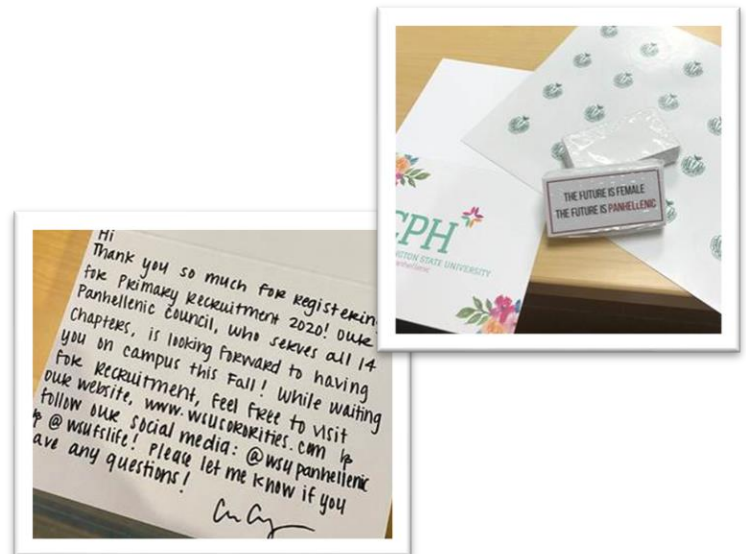 Hi
Thank you so much for Registering
for Primary Recruitment 2020! Our
Panhellenic Council, who serves all 14
chapters, is looking forward to having
you on campus this Fall! While waiting
for Recruitment, feel free to visit
our website, www.wsusororities.com
follow our social media: @wsupanhellenic
@wsufslife! Please let me know if you
any questions!
CPH
STATE UNIVERSITY
THE FUTURE IS FEMALE
THE FUTURE IS PANHELLENIC